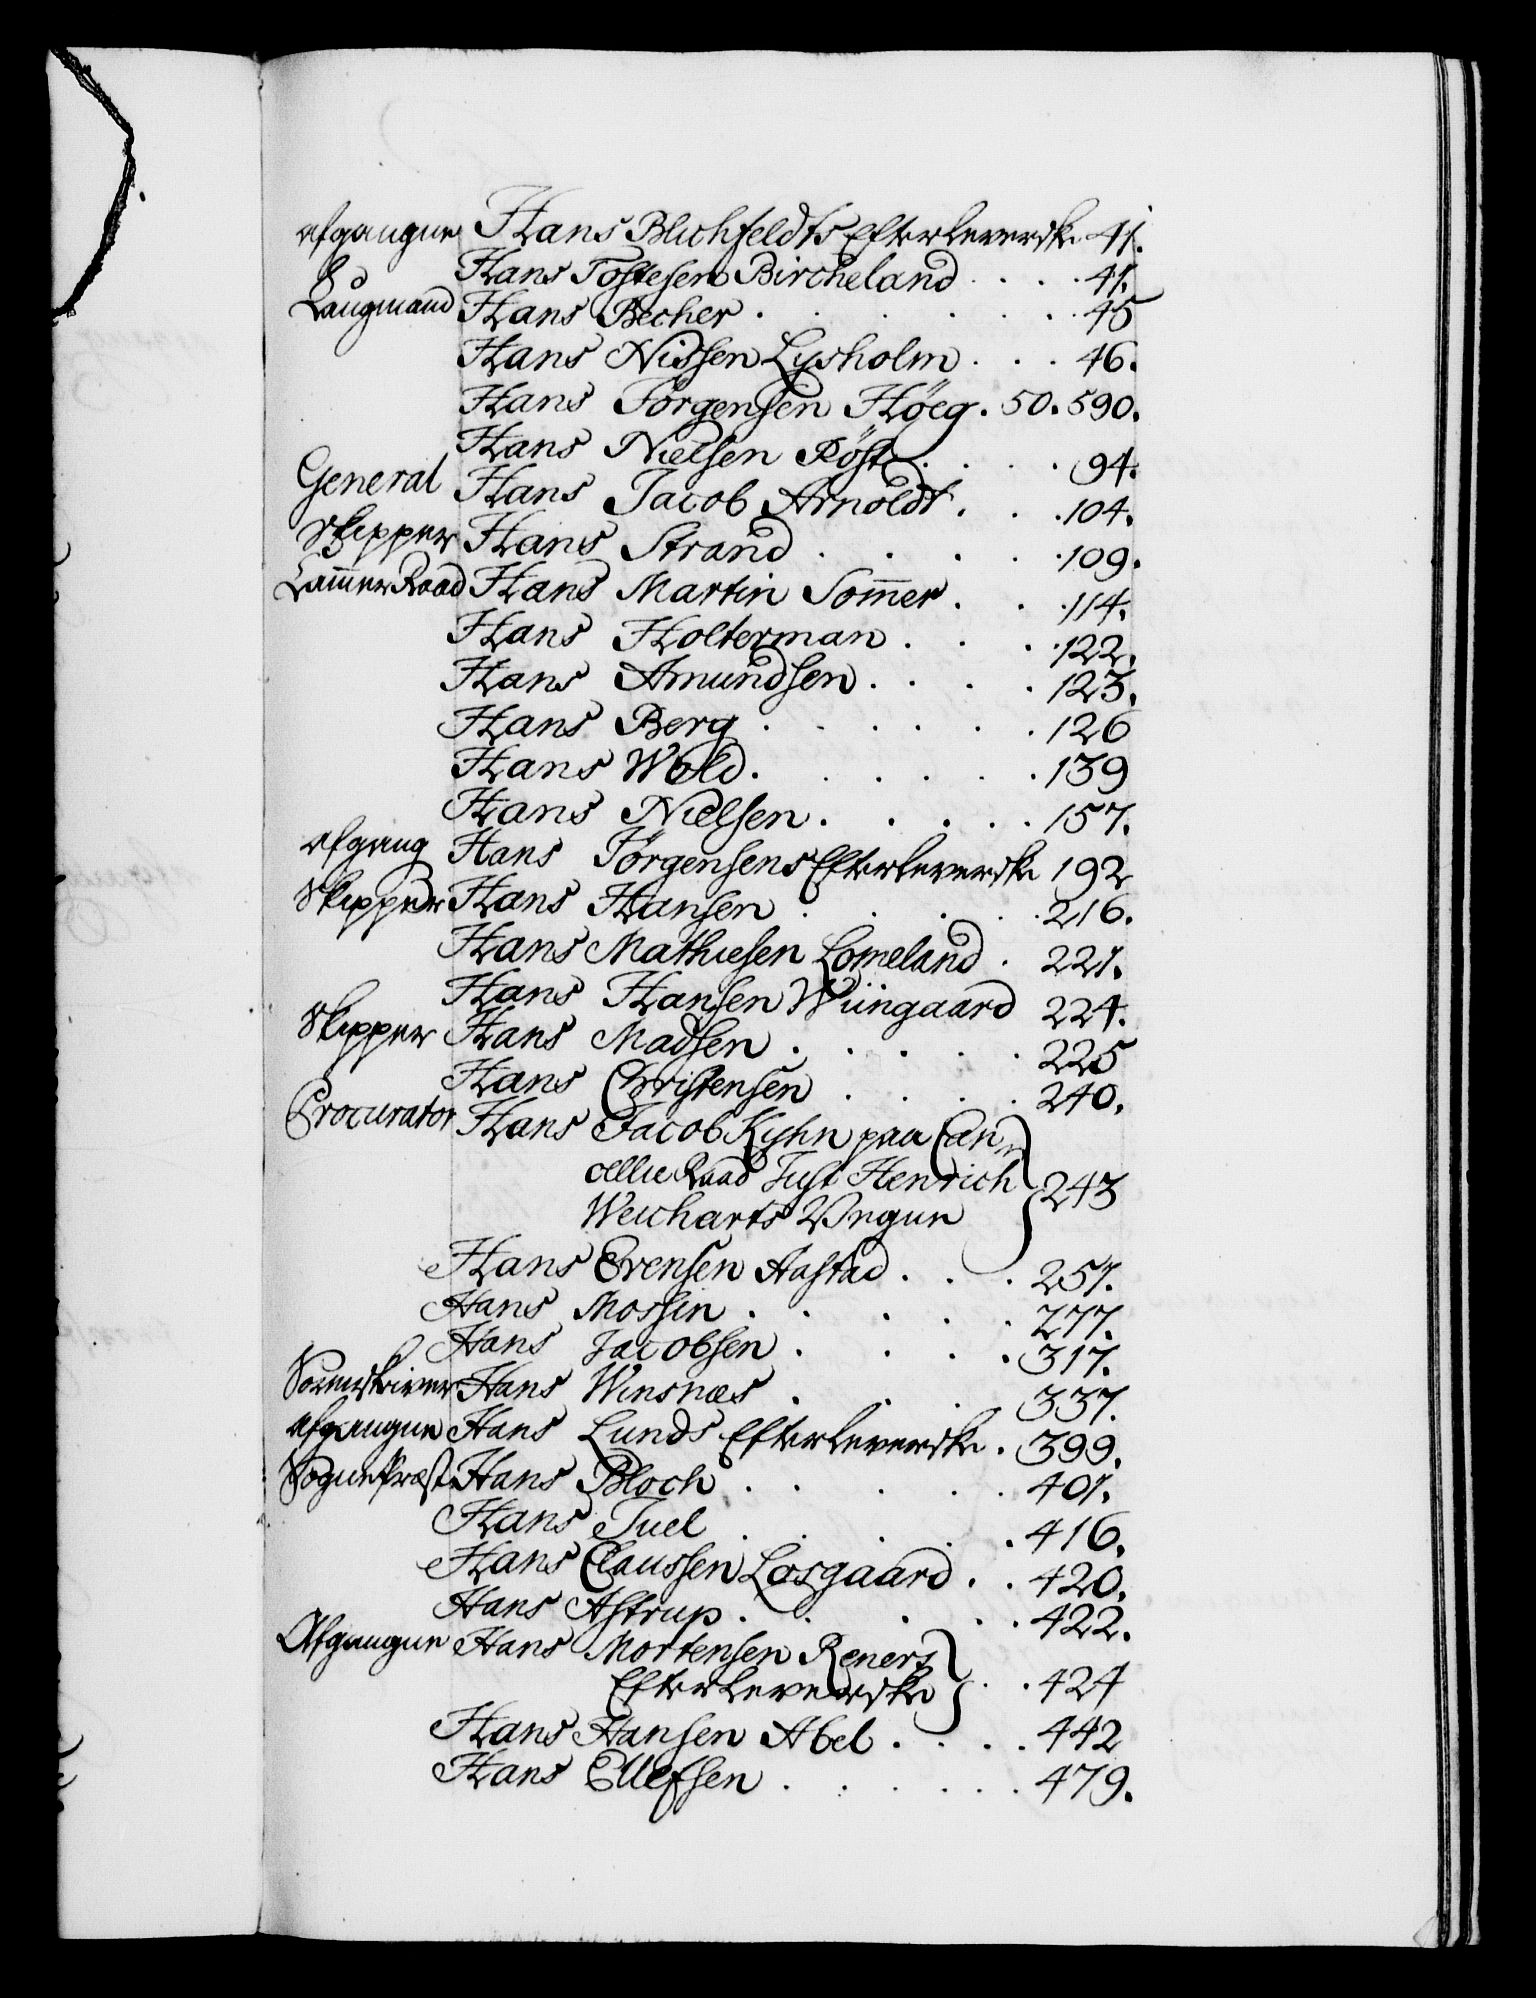 afgangne Hans Blichfeldts Efterleverske 41.
Hans Tostesen Bircheland . . . . 41.
Laugmand Hans Becher . . . . . . 45
Hans Nissen Lysholm . . . 46.
Hans Jörgensen Höeg . 50. 590.
Hans Nielsen Röst . . . . 94.
General Hans Jacob Arnoldt . . . 104.
Skipper Hans Strand . . . . . 109.
Cam̅er Raad Hans Martin Som̅er . . . 114.
Hans Holterman . . . . 122.
Hans Amundsen . . . . 123.
Hans Berg . . . . . . 126
Hans Wold . . . . . . 139
Hans Nielsen . . . . . 157.
afgang Hans Jörgensens Efterleverske 192
Skipper Hans Hansen . . . . . 216.
Hans Mathiesen Lomeland . 221.
Hans Hansen Wiingaard 224.
Skipper Hans Madsen . . . . . 225
Hans Christensen . . . . 240.
Procurator Hans Jacob Kyhn paa Can
cellie Raad Just Henrich 243
Weicharts Vegne
Hans Evensen Aastad . . . 251.
Hans Mossin . . . . . 277.
Hans Jacobsen . . . . 317.
Sorenskriver Hans Winsnæs . . . 337.
afgangne Hans Lunds Efterleverske . 399.
Sognepræst Hans Bloch . . . . . 401.
Hans Juel . . . . . 416.
Hans Claussen Losgaard . . 420.
Hans Astrup . . . . . 422.
Afgangne Hans Mortensen Reners
Efterleverske . . 424
Hans Hansen Abel . . . . 442
Hans Ellefsen . . . . . . 479.